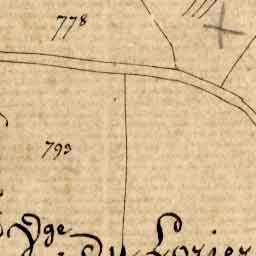 778
793
Vge du Lorier